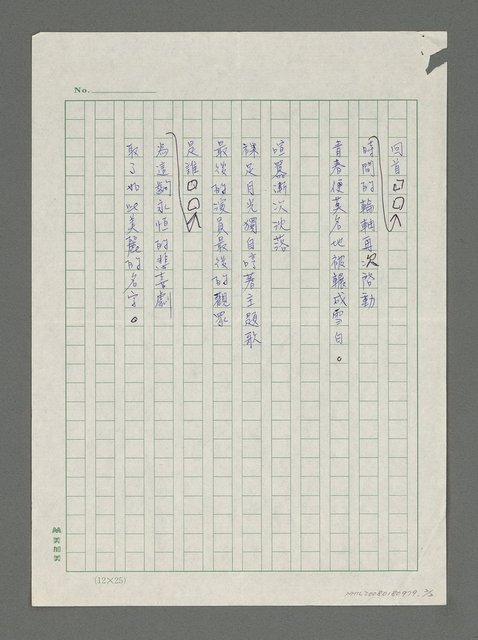 No.
回首□□
時間的輪軸再次啓動
青春便莫名地被輾成雪白。
喧囂漸次沈落
裸足月光獨自哼著主題歌
最後的演員最後的觀眾
是誰□□
為這齣永恒的悲喜劇
取了如此美麗的名字。
(12×25)